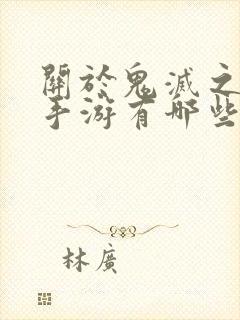 關於鬼滅之
手游有哪些
林廣